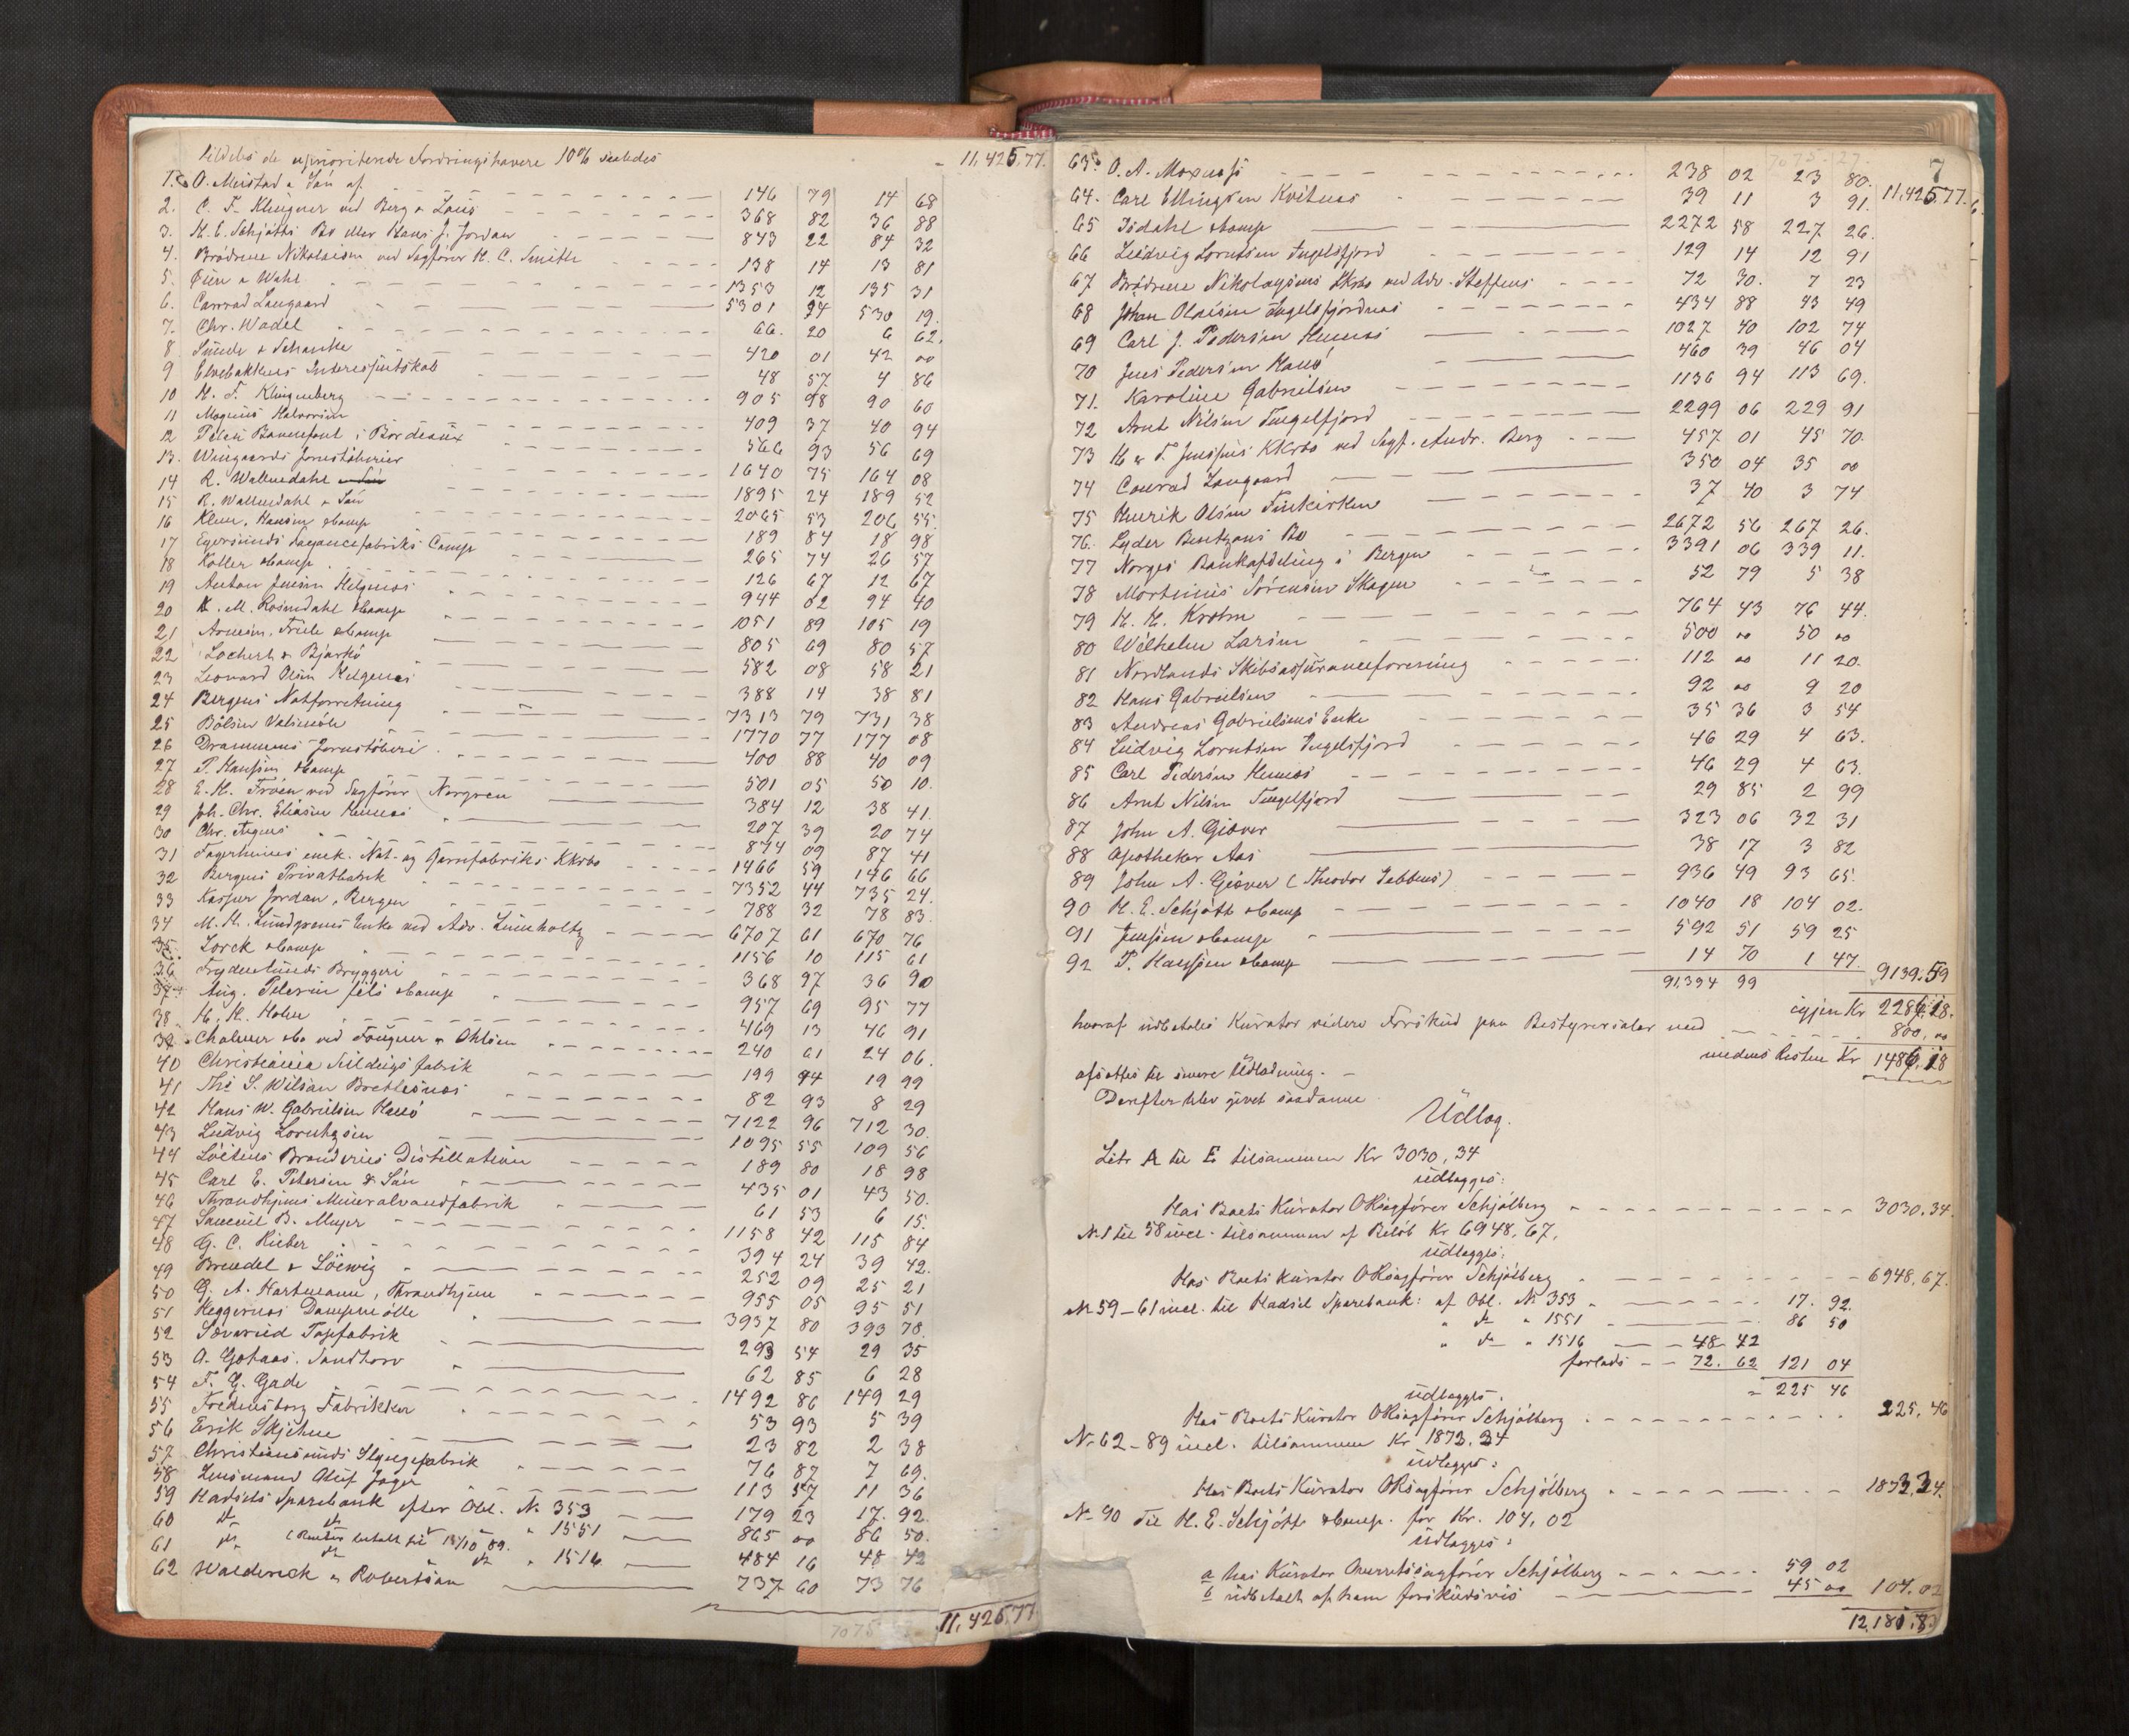 tildeles de uprioriterede Fordringshavere 10% saaledes - 11,425,77.
1. O. Meistad & Søn af 146 79 14 68
2. C. F. Klingner ved Berg & Løus 368 82 36 88
3. H. E. Schjøtts Bo eller Hans J. Jordan 843 22 84 32
4. Brødrene Nikolaisen ved Sagfører H. C. Smith 138 14 13 81
5. Øien & Wahl 1353 12 135 31
6. Conrad Langaard 5301 94 530 19.
7. Chr. Wadel 66. 20 6 62.
8 Sunde & Schanke 420 01 42 00
9 Elvebakkens Interessentskab 48 57 4 86
10 H. F. Klingenberg 905 98 90 60
11 Magnus Halvorsen 409 37 40 94
12 Péleu Bannefont i Bordeaux 566 93 56 69
13. Wingaards Jernstøberier 1640 75 164 08
14 R. Wallendahl 1895 24 189 52
15 R. Wallendahl & Søn 2065 53 206 55
16 Klem, Hansen & Comp 189 84 18 98
17 Egersunds Fayancefabriks Comp 265 74 26 57
18 Koller & Comp. 126 67 12 67
19 Anton Jensen Helgenes 944 02 94 40
20 K. M. Rosendahl & Comp 1051 89 105 19
21 Arnesen, Friele & Comp 805 69 80 57
22 Lochert & Bjarkø 582 08 58 21
23 Leonard Olsen Helgenes 388 14 38 81
24 Bergens Notforretning 7313 79 731 38
25 Bølsen Valsmøle 1770 77 177 08
26 Drammens Jernstøberi 400 88 40 09
27 P. Hansen & Comp 501 05 50 10.
28 E. H. Frøen ved Sagfører Norgren 384 12 38 41.
29 Joh. Chr. Eliasen Hennes 207 39 20 74
30 Chr. Augens 874 09 87 41
31 Fagerheims enek. Not- og Garnfabriks Kkrbo 1466 59 146 66
32 Bergens Privatbank 7352 44 735 24.
33 Kasper Jordan, Bergen 788 32 78 83.
34 M. H. Lundgrens Enke ved Adv. Lumholtz 6707 61 670 76
35. Lorck & Comp 1156 10 115 61
36 Frydenlunds Bryggeri 368 97 36 90
37 Aug. Pellerin fils & Comp 957 69 95 77
38 H. H. Holm 469 13 46 91
39 Chalmer & Co ved Fougner & Ohlsen 240 61 24 06.
40 Christiania Sildrigs fabrik 199 94 19 99
41 Ths S. Wilson Brettesnes 82 93 8 29
42 Hans W. Gabrielsen Hanø 7122 96 712 30.
43 Ludvig Lorentzen 1095 55 109 56
44 Löitens Brænderies Distillation 189 80 18 98
45 Carl E. Petersen & Søn 435 01 43 50.
46 Throndhjems Mineralvandfabrik 61 53 6 15.
47 Samuel B. Meyer 1158 42 115 84
48 G. C. Rieber 394 24 39 42.
49 Brendel & Löewig 252 09 25 21
50 G. A. Hartmann, Throndhjem 955 05 95 51
51 Heggernes Dampmølle 3937 80 393 78.
52 Sørerud Tapfabrik 293 54 29 35
53 A. Gotaas. Sandtorv 62 85 6 28
54 F. G. Gade 1492 86 149 29
55 Fredensborg Fabrikker 53 93 5 39
56 Erik Skjelme 23 82 2 38
57. Christiansunds Slyngefabrik 76 87 7 69.
58 Lensmand Oluf Jager 113 57 11 36
59 Hadsels Sparebank efter Obl. No 353 179 23 17. 92.
60 do do " 1551 865 00 86 50.
61 do (Renter betalt til 15/10 89. do do " 1516 484 16 48 42
62 Walderick & Robertson 737 60 73 76
11,425,77
7
7075. 27.
63. O. A. Moxness 238 02 23 80.
11,425,77.
64. Carl Ellingsen Kvitnes 39 11 3 91.
65 Isdahl & Comp 2272 58 227 26.
66 Ludvig Lorntsen Ingelsfjord 129 14 12 91
67 Brødrene Nikolaysens Kkrbo ved Adv. Steffens 72 30. 7 23
68 Johan Olaisen Ingelsfjordnes 434 88 43 49
69 Carl J. Pedersen Hennes 1027 40 102 74
70 Jens Pedersen Hanø 460 39 46 04
71. Karoline Gabrielsen 1136 94 113 69.
72 Arnt Nilsen Ingelfjord 2299 06 229 91
73 H & F. Jensens Kkrbo ved Sagf. Andr. Berg 457 01 45 70.
74 Conrad Langaard 350 04 35 00
75 Henrik Olsen Finkirken 37 40 3 74
76. Lyder Bentzons Bo 2672 56 267 26.
77 Norges Bankafdeling i Bergen 3391 06 339 11.
78 Mortinus Sørensen Skagen 52 79 5 38
79 H. H. Krohn 764 43 76 44.
80 Wilhelm Larsen 500 00 50 00
81 Nordlands Skibsassuranceforening 112 00 11 20.
82 Hans Gabrielsen 92 00 9 20
83 Andreas Gabrielsens Enke 35 36 3 54
84 Ludvig Lorntsen Ingelsfjord 46 29 4 63.
85 Carl Pedersen Hennes 46 29 4 63.
86 Arnt Nilsen Ingelfjord 29 85 2 99
87 John A. Giæver 323 06 32 31
88 Apotheker Aas 38 17 3 82
89 John A. Giæver (Theodor Jebbens) 936 49 93 65.
90 H. E. Schjøtt & Comp 1040 18 104 02.
91 Jensen & Comp 592 51 59 25
92 P. Hanssen & Comp 14 70 1 47.
91,394 99 9139,59
igjen Kr 2286,18.
hvoraf udbetales Kurator videre Forskud paa Bestyrersalær med 800,00
medens Resten Kr 1486,18
afsættes til senere Udlodning. -
Derefter blev givet saadanne
Udlæg.
Litr A til E tilsammen Kr 3030,34
udlægges:
Hos Boets Kurator ORsagfører Schjølberg 3030,34.
No 1 til 58 incl. tilsammen af Beløb Kr 6948,67,
udlægges:
Hos Boets Kurator ORsagfører Schjølberg 6948,67.
No 59-61 incl. til Hadsel Sparebank: af Obl. No 353 17. 92.
" do " 1551 86 50
" do " 1516 48 42
forlods 72. 62 121 04
225 46
udlægges.
Hos Boets Kurator ORsagfører Schjølberg 225,46
No 62-89 incl. tilsammen Kr 1873,34
udlægges:
Hos Boets Kurator ORsagfører Schjølberg 1873,34.
No 90 Til H. E. Schjøtt & Comp. for Kr. 104,02
udlægges:
a hos Kurator Overretssagfører Schjølberg 59 02
b udbetalt af ham forskudsvis 45 00 104,02